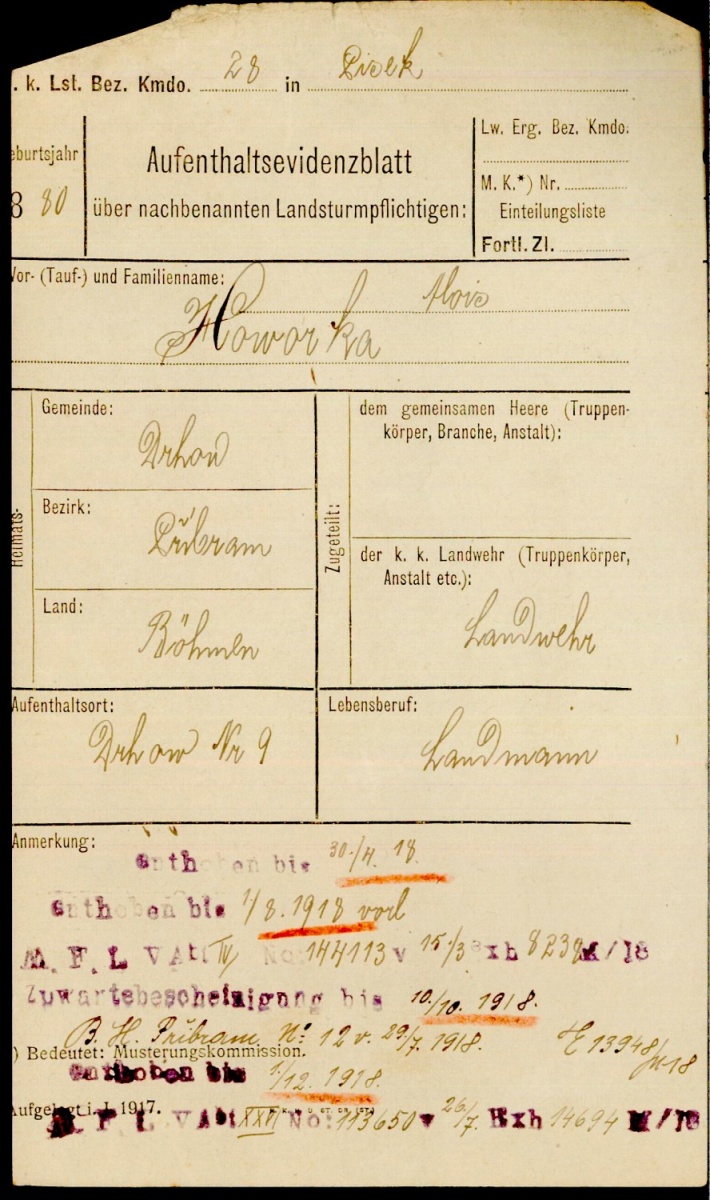 . k. Lst. Bez. Kmdo. 28 in Pisek
eburtsjahr
8 80
Aufenthaltsevidenzblatt
über nachbenannten Landsturmpflichtigen:
Lw. Erg. Bez. Kmdo.
M. K.*) Nr.
Einteilungsliste
Fortl. Zl.
Vor- (Tauf-) und Familienname:
Alois
Howorka
Heimats-
Gemeinde:
Drhow
Bezirk:
Přibram
Land:
Böhmen
Zugeteilt:
dem gemeinsamen Heere (Truppen-
körper, Branche, Anstalt):
der k. k. Landwehr (Truppenkörper,
Anstalt etc.):
Landwehr
Aufenthaltsort:
Drhow Nr 9
Lebensberuf:
Landmann
Anmerkung:
enthoben bis 30./4. 18.
enthoben bis 1/8. 1918 vorl
M. F. L V Att IV No: 144113 v 15./3 exh 8232 M/18
Zuwartebescheinigung bis 10./10. 1918.
B. H. Přibram No: 12 v. 29/7. 1918. E 13948/M 18
) Bedeutet: Musterungskommission.
enthoben bis 1./12. 1918.
Aufgelegt i. J. 1917.
M F L V Abt XXVI No: 113650 v 26/7. Exh 14694 M/18